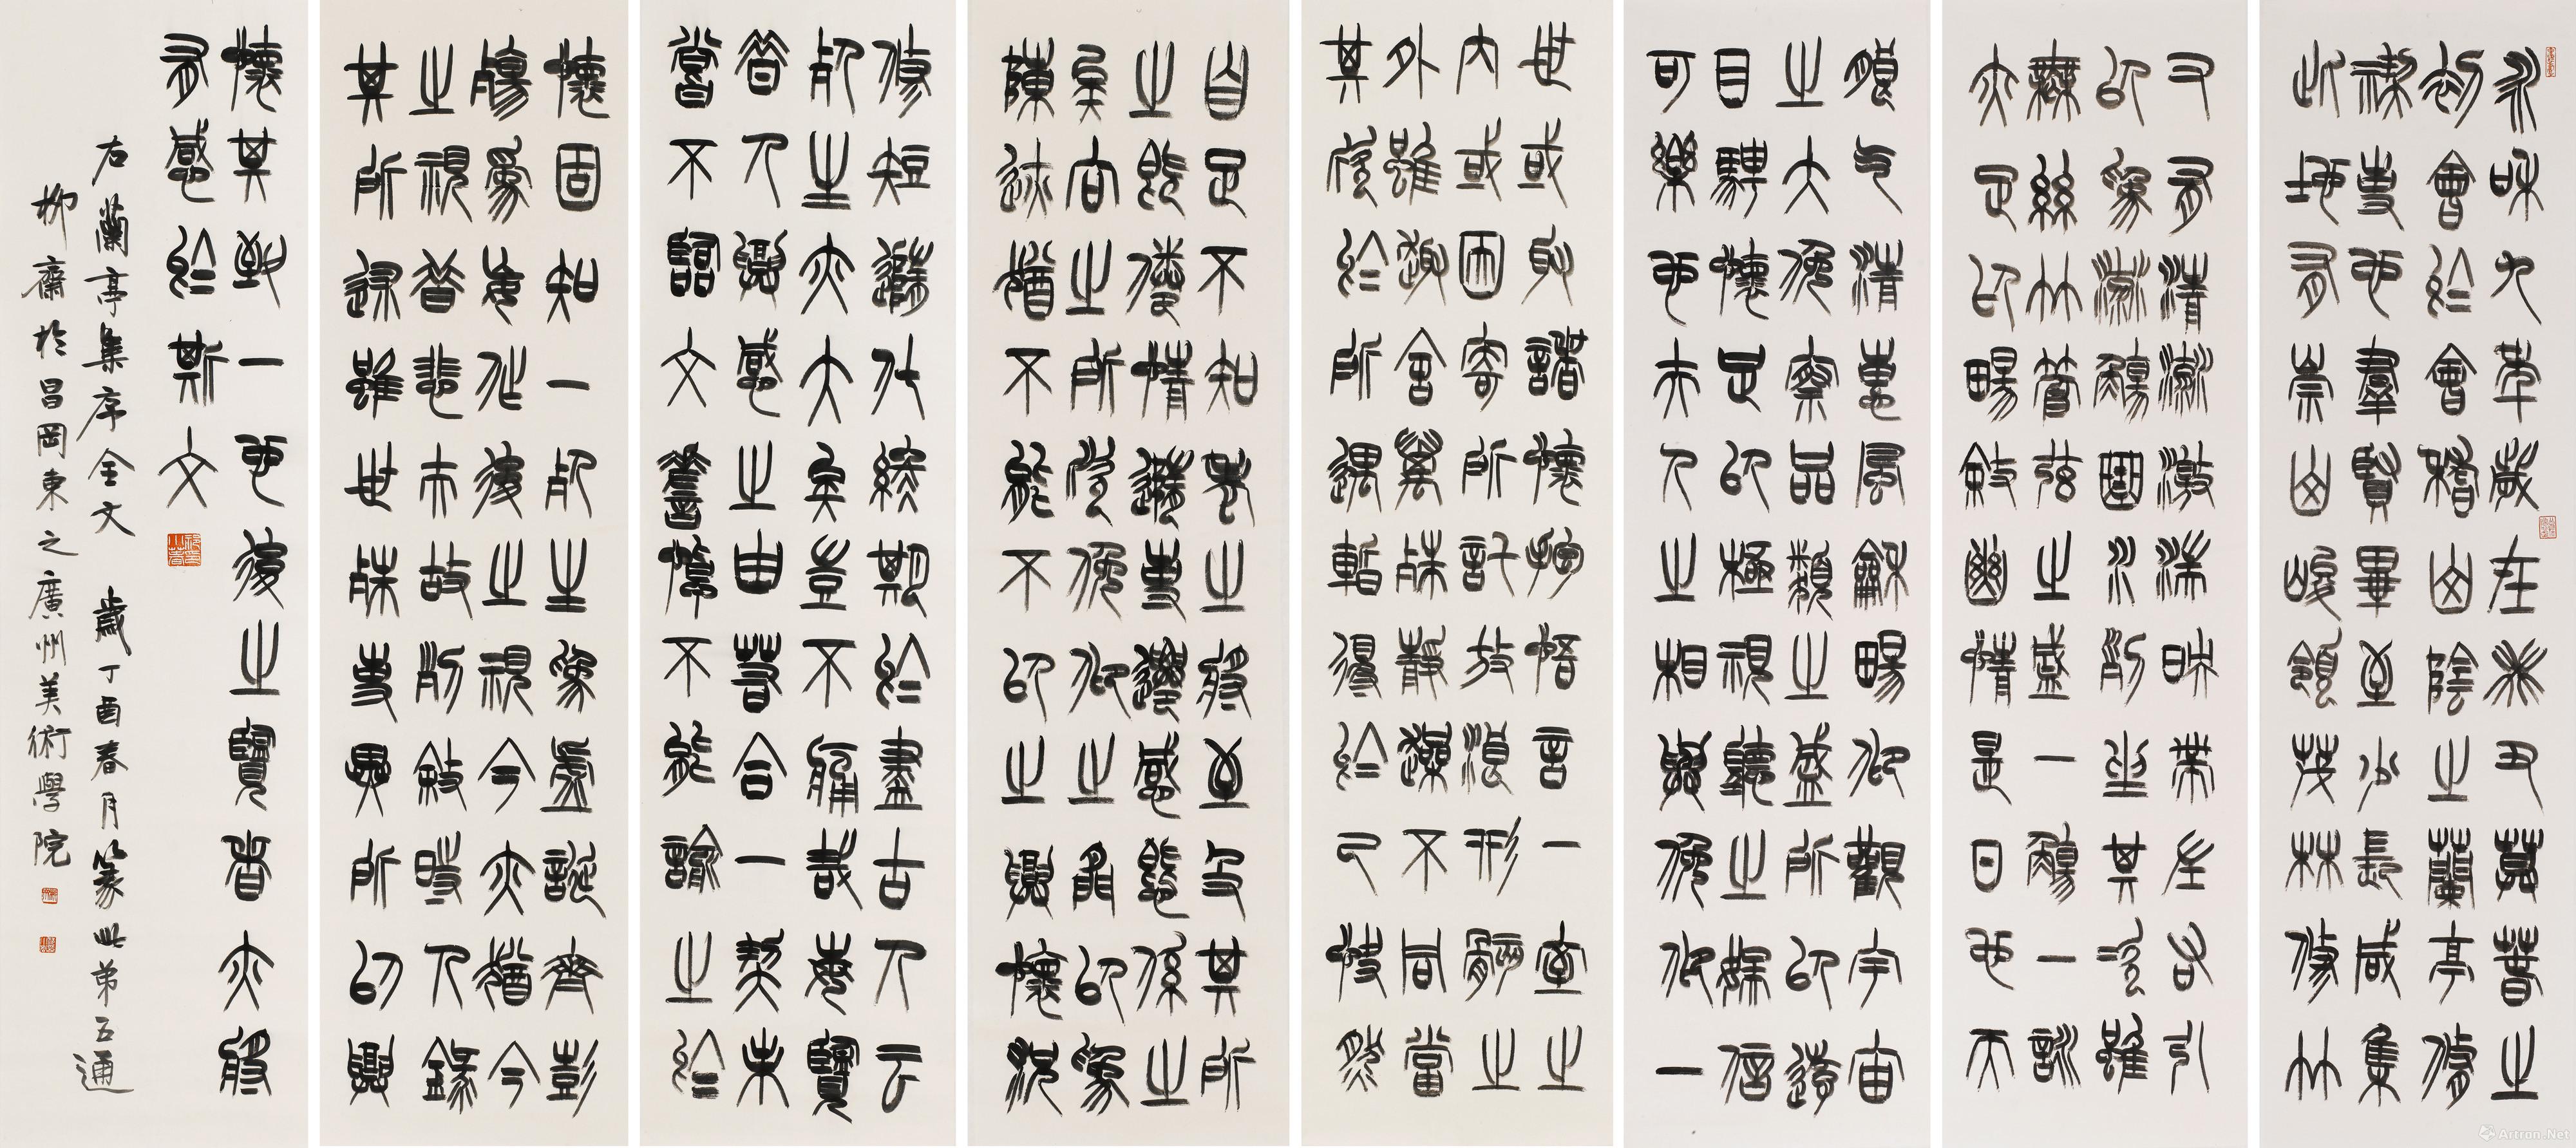 永和九年歲在癸丑暮春之
初會於會稽山陰之蘭亭脩
禊事也羣賢畢至少長咸集
此地有崇山峻領茂林脩竹
又有清流激湍映帶左右引
以為流觴曲水列坐其次雖
無絲竹管弦之盛一觴一詠
亦足以暢敘幽情是日也天
朗氣清惠風龢暢仰觀宇宙
之大俛察品類之盛所以遊
目騁懷足以極視聽之娛信
可樂也夫人之相與俛仰一
世或取諸懷抱悟言一室之
內或因寄所託放浪形骸之
外雖趣舍萬殊靜躁不同當
其欣於所遇暫得於己快然
自足不知老之將至及其所
之既倦情隨事遷感慨係之
矣向之所欣俛仰之間以為
陳迹猶不能不以之興懷況
脩短隨化終期於盡古人云
死生亦大矣豈不痛哉每覽
昔人興感之由若合一契未
嘗不臨文嗟悼不能喻之於
懷固知一死生為虛誕齊彭
殤為妄作後之視今亦猶今
之視昔悲夫故列敘時人錄
其所述雖世殊事異所以興
懷其致一也後之覽者亦將
有感於斯文
右蘭亭集序全文 歲丁酉春月篆此弟五通
柳齋於昌岡東之廣州美術學院
Artron.Net